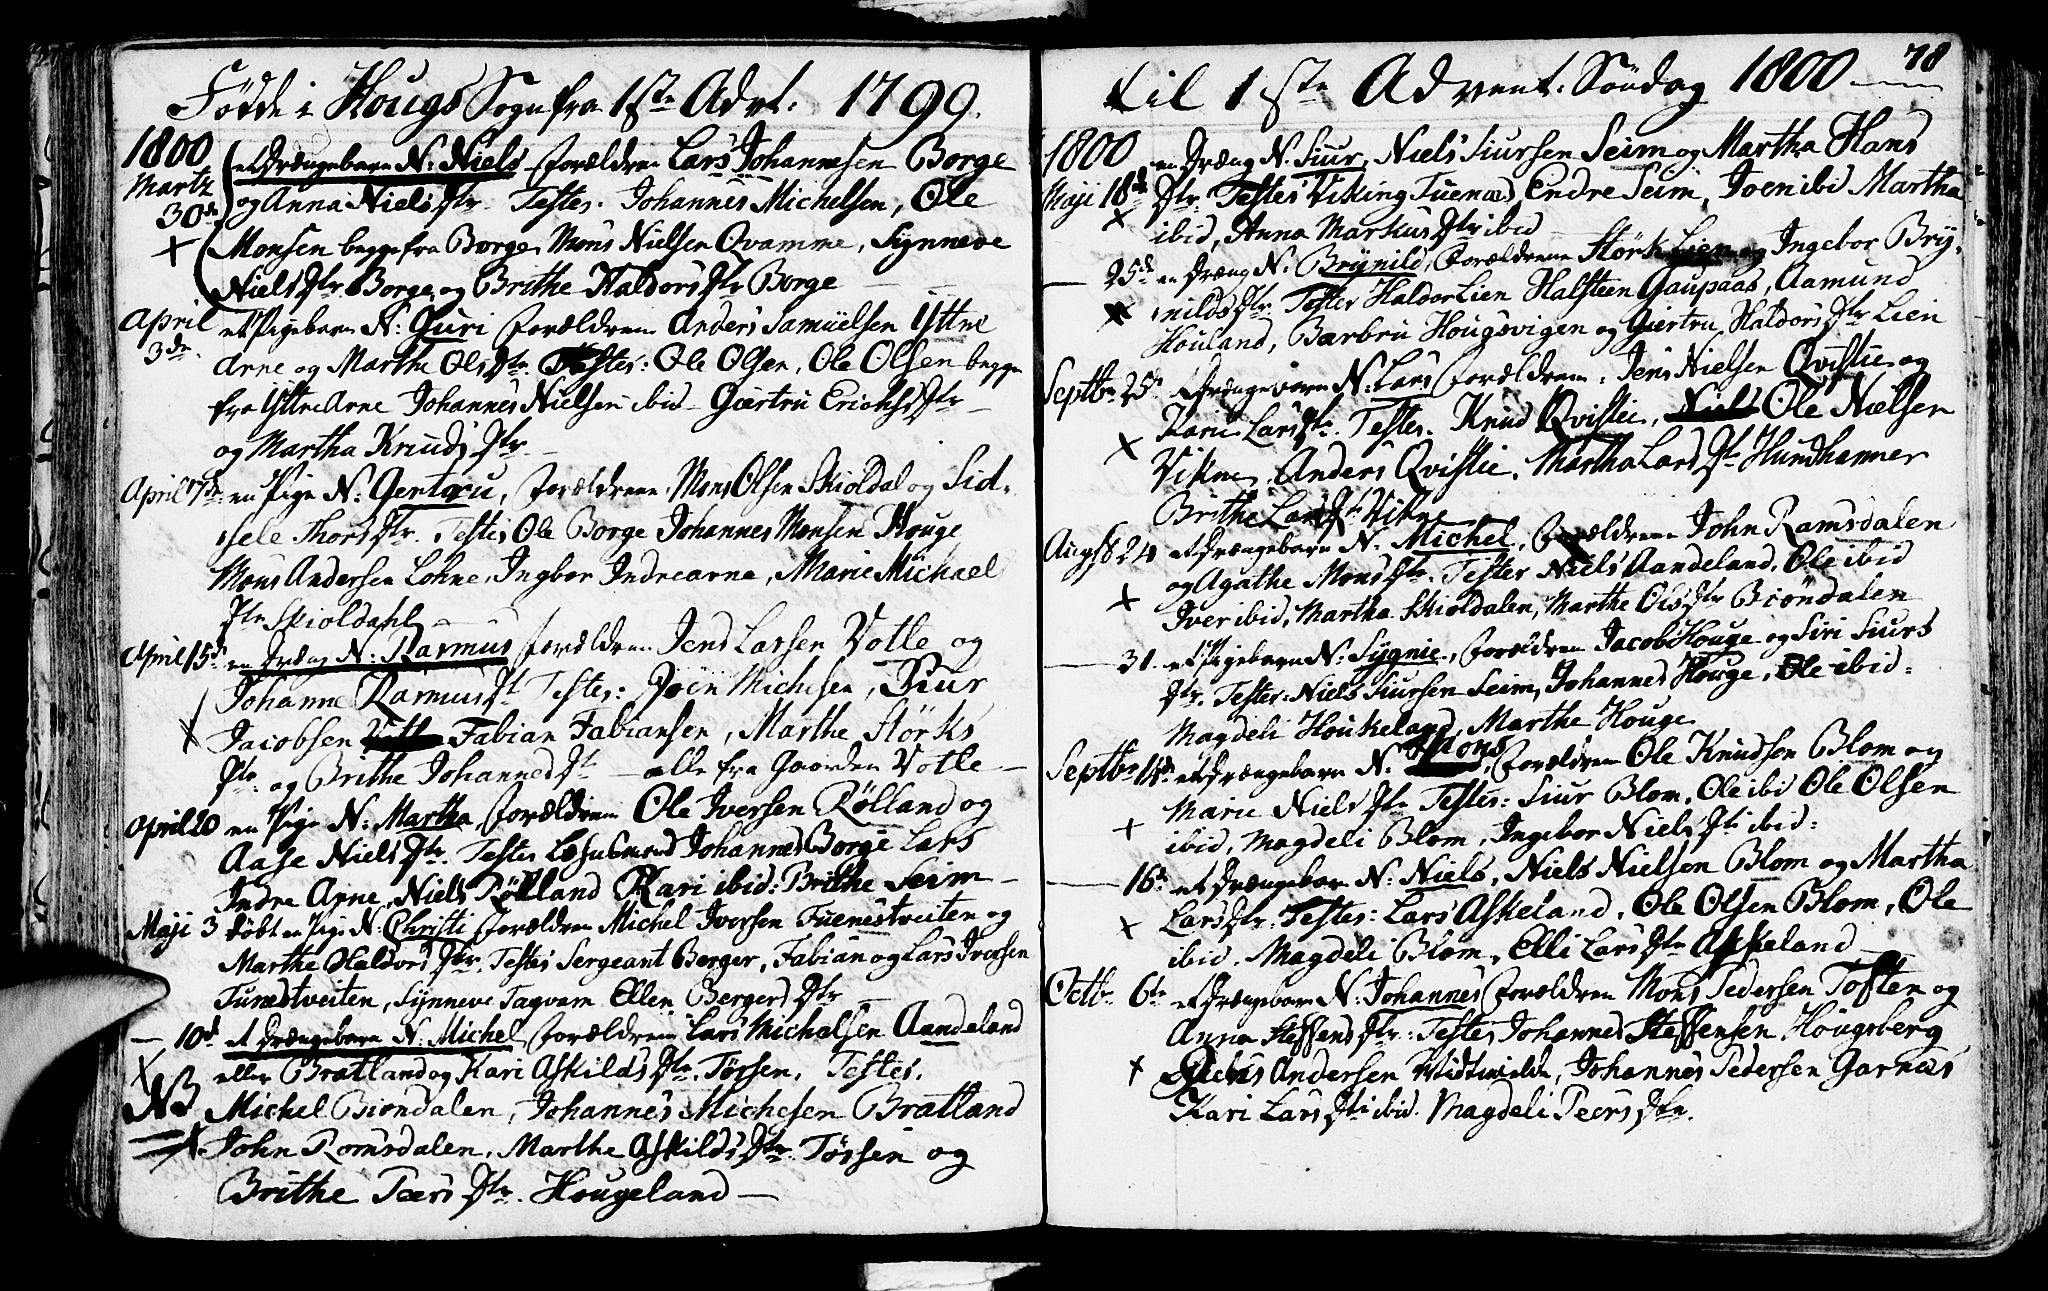 Födde i Hougs Sogn fra 1ste Advt. 1799.
1800 et drængebarn N: Niels forældren Lars Johannesen Borge
Martz 30de og Anna Niels Dtr. Testes. Johannes Michelsen, Ole
Monsen begge fra Borge, Mons Nielsen Qvamme, Synneve
Niels Dtr. Borge og Brithe Haldors Dtr Borge
April 3de. et Pigebarn N: Guri forældren Anders Samuelsen Yttre
Arne og Marthe Ols Dtr. Testes: Ole Olsen, Ole Olsen begge
fra Yttre Arne Johannes Nielsen ibid Giertru Erichs Dtr
og Martha Knuds Dtr.
April 7de en Pige N: Gertru, forældrene Mons Olsen Skioldal og Sid-
sele Thors Dtr. Testes Ole Borge Johannes Monsen Houge
Mons Andersen Lohne, Ingbor Indrearne, Marie Michaels
Dtr Skioldahl
April 15de en Dræng N: Rasmus forældren Jens Larsen Votle og
Johanne Rasmus Dt Testes: Joen Michelsen, Siur
Jacobsen Fabian Fabiansen, Marthe Störks
Dtr og Brithe Johannes Dt alle fra Gaarden Votle
April 20 en Pige N: Martha forældren Ole Iversen Rölland og
Aase Niels Dtr. Testes Johannes Borge Lars
Indre Arne, Niels Rölland Kari ibid: Brithe Seim
Maji 3 döbt en Pige N: Christi forældren Michel Iversen Fuenestveiten og
Marthe Haldors Dtr. Testes Sergeant Berger, Fabian og Lars Iversen
Tunestveiten, Synneve Tagvam Ellen Bergers Dtr
10d et drængebarn N: Michel forældren Lars Michalsen Aandeland
eller Bratland og Kari Askilds Dtr. Törsen. Testes.
NB Michel Biondalen, Johannes Michelsen Bratland
John Romsdalen, Marthe Askilds Dtr. Törsen og
Brithe Peers Dtr. Hougeland
til 1ste Advent. Söndag 1800 78
1800 en Dræng N. Siur, Niels Siursen Seim og Martha Hans
Maji 18de Dtr. Testes Viking Tuenæs, Endre Seim, Joen ibid Martha
ibid, Anna Markus Dtr ibid
25de en dræng N: Brynild, forældrene Störk Lien og Ingebor Bry-
nilds Dtr. Testes Haldor Lien Halsteen Gaupaas, Aamund
Houland, Barbru Hougsvigen og Giertru Haldors Dtr Lien
Septbr 25de et drængebarn N: Lars forældren: Jens Nielsen Qvistie og
Kari Lars Dtr. Testes. Knud Qvistie, Niels Ole Nielsen
Vikne, Anders Qvistie. Martha Lars Dtr Hundhammer
Brithe Lars Dtr Vikne
Augst 24 et drængebarn N: Michel. forældren John Ramsdalen
og Agathe Mons Dtr. Testes Niels Aandeland, Ole ibid
Iver ibid, Martha Skioldalen, Marthe Ols Dtr Biöndalen
31. et Pigebarn N: Sygnie, forældren Jacob Houge og Siri Siurs
Dtr. Testes: Niels Siursen Seim, Johannes Houge, Ole ibid:
Magdeli Houkeland, Marthe Houge
Septbr 14de et drængebarn N: Mons forældren Ole Knudsen Blom og
Marie Niels Dtr Testes: Siur Blom, Ole ibi Ole Olsen
ibid, Magdeli Blom, Ingebor Niels Dtr ibid:
16de et drængebar N: Niels, Niels Nielsen Blom og Martha
Lars Dtr. Testes: Lars Askeland, Ole Olsen Blom, Ole
ibid. Magdeli Blom, Elli Lars Dtr Askeland
Octbr 6te et drængebar N: Johannes forældren Mons Pedersen Toften og
Anna Steffens Dtr: Testes Johannes Steffensen Hougsberg
Andersen Midtvielde, Johannes Pedersen Garnæs
Kari Lars Dtr ibid. Magdeli Peers Dtr.